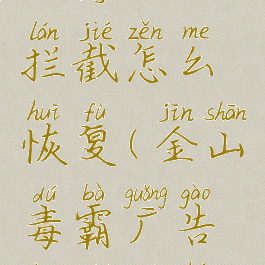 lán jié zěn me
拦截怎么
huī fù jīn shān
恢复(金山
dú bà guǎng gào
毒霸广告